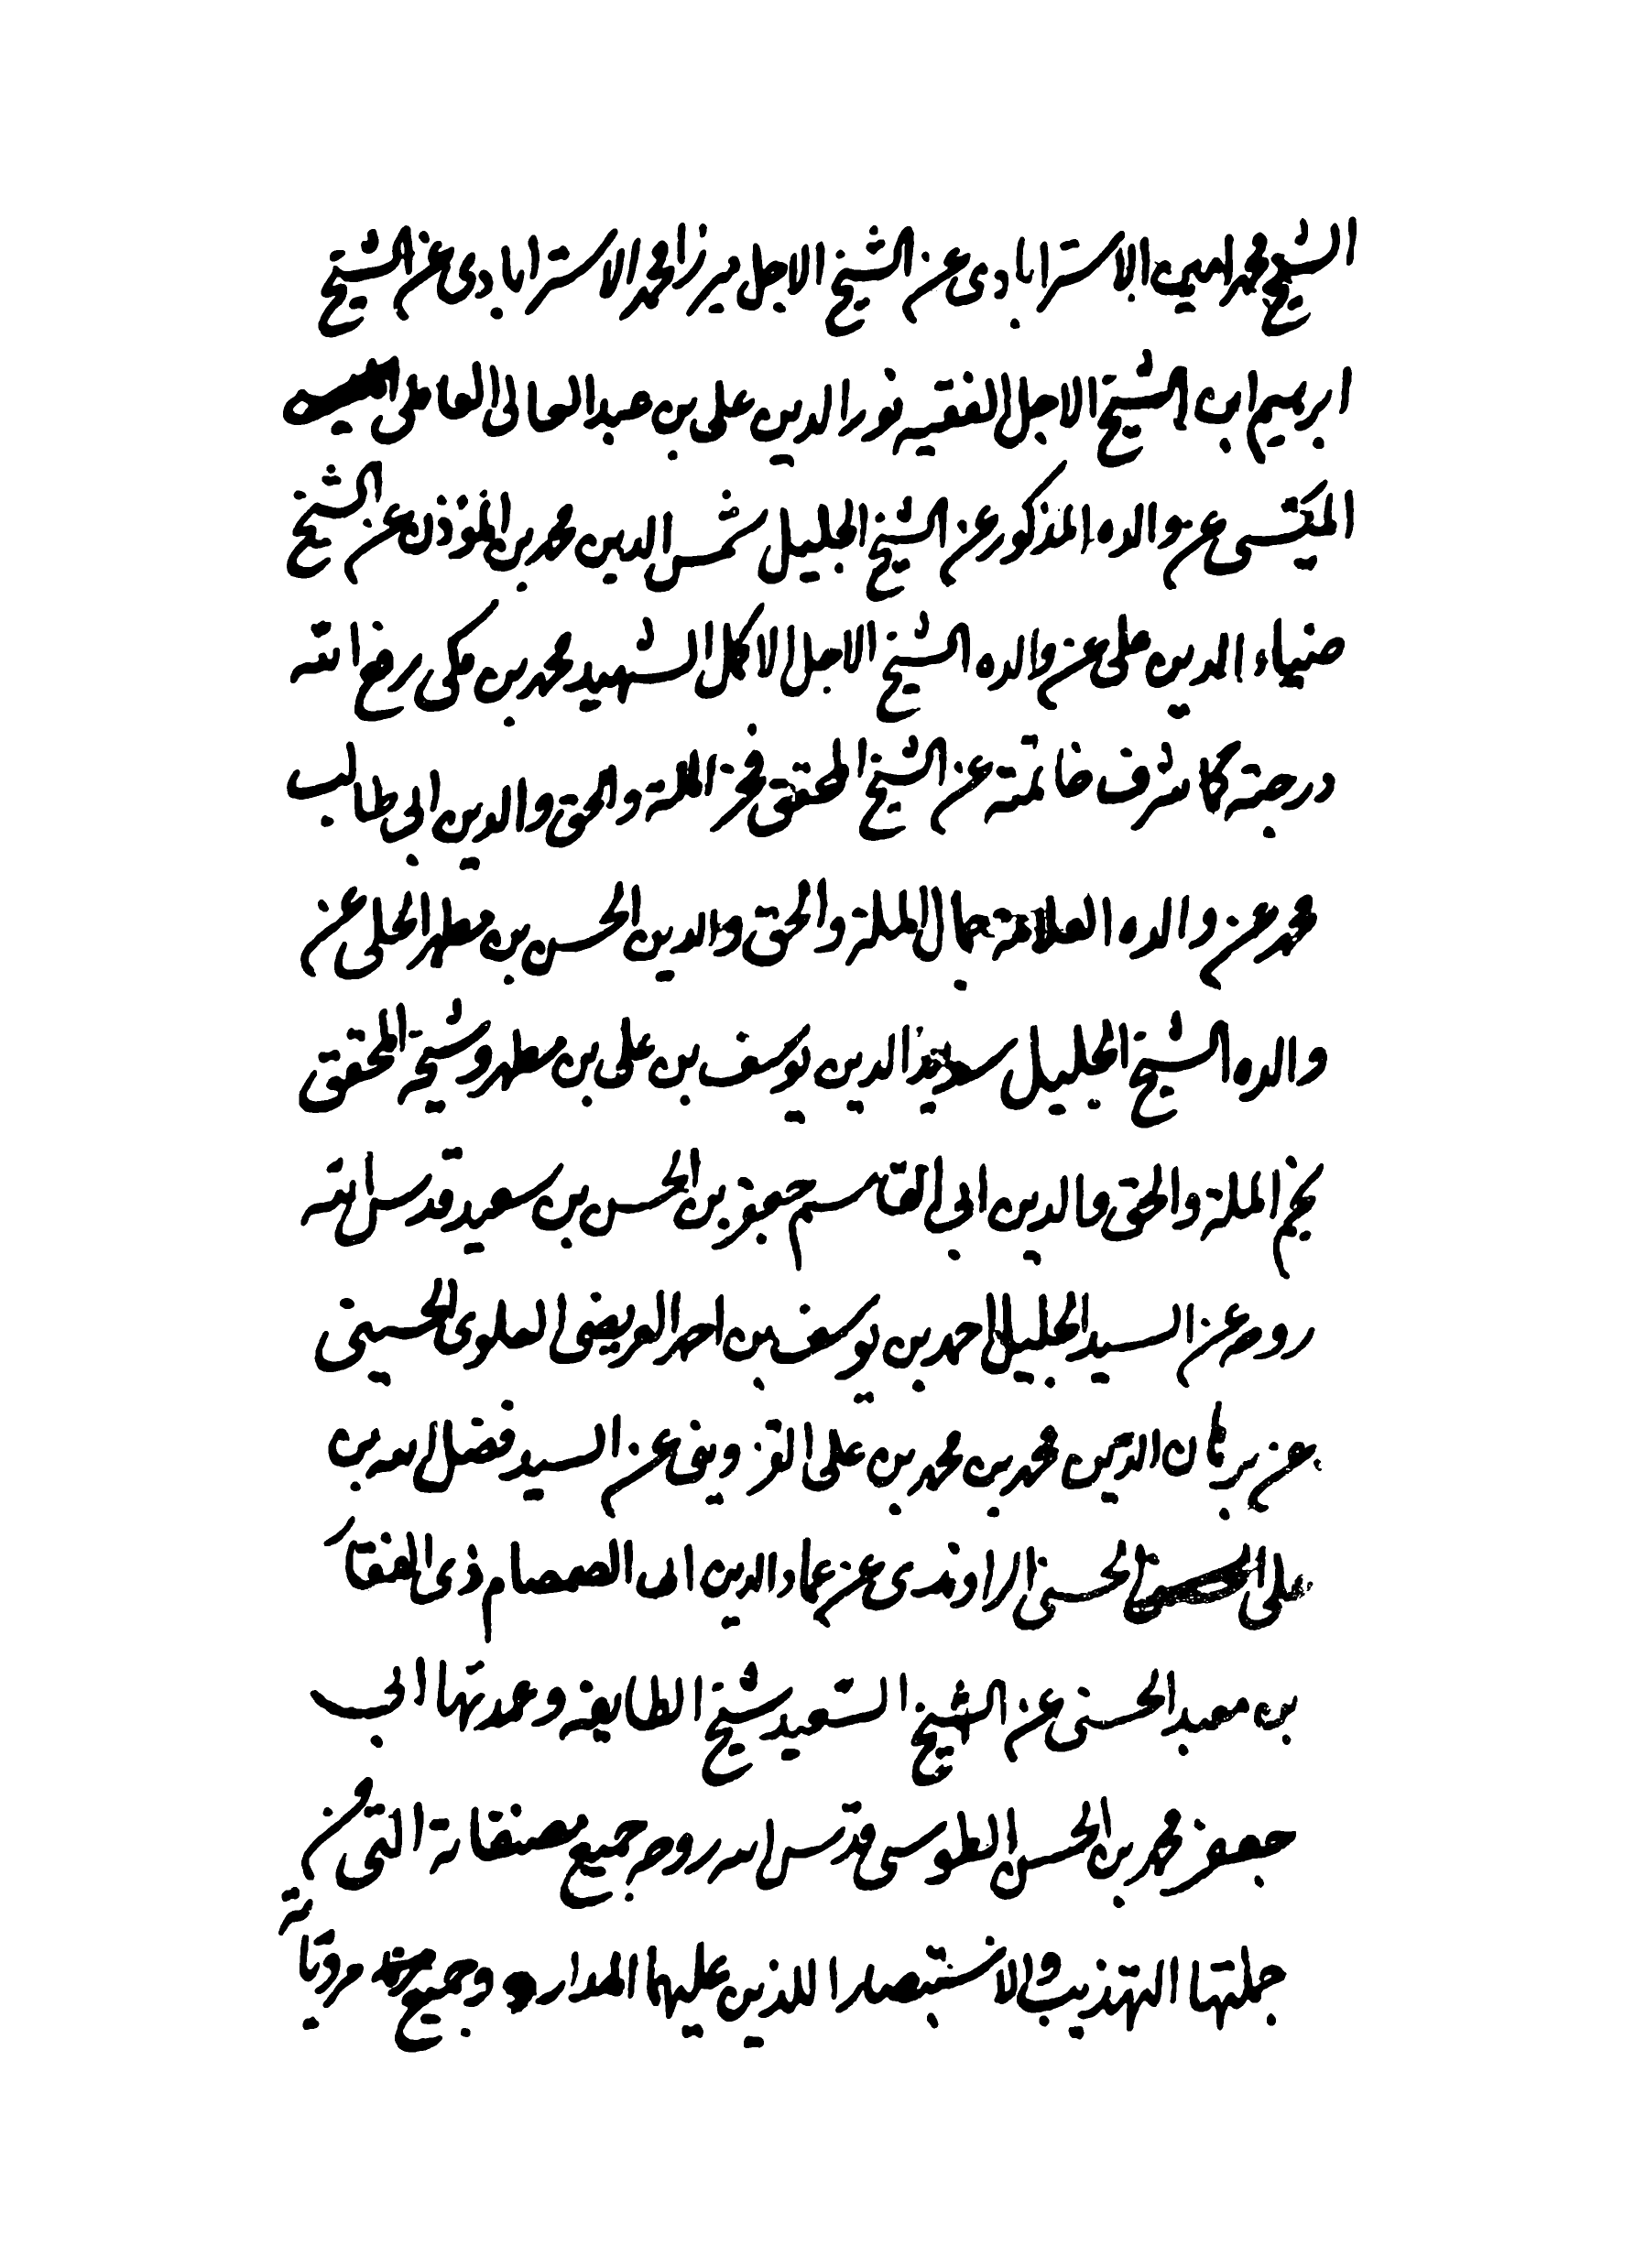 الشيخ محمد امين الاسترابادى عن الشيخ الاجل ميرزا محمد الاسترابادى عن الشيخ
ابرهيم ابن الشيخ الاجل الفقيه نور الدين على بن عبد العالى العاملى
الميسى عن والده المذكور عن الشيخ الجليل شمس الدين محمد بن المؤذن عن الشيخ
ضياء الدين على عن والده الشيخ الاجل الاكمل الشهيد محمد بن مكى رفع الله
درجته كما شرف خاتمته عن الشيخ المحقق فخر الملة والحق والدين ابى طالب
محمد عن والده العلامة جمال الملة والحق والدين الحسن بن مطهر الحلى عن
والده الشيخ الجليل سديد الدين يوسف بن على بن مطهر وشيخه المحقق
نجم الملة والحق والدين ابى القاسم جعفر بن الحسن بن سعيد قدس الله
روحه عن السيد الجليل احمد بن يوسف بن احمد العريضى العلوى الحسينى
عن برهان الدين محمد بن محمد بن على القزوينى عن السيد فضل الله بن
على الحسنى الراوندى عن عماد الدين ابى الصمصام ذى الفقار
بن معبد الحسنى عن الشيخ السعيد شيخ الطايفه وعمدتها ابى
جعفر محمد بن الحسن الطوسى قدس الله روحه جميع مصنفاته التى من
جملتها التهذيب والاستبصار اللذين عليهما المدار وجميع مروياته